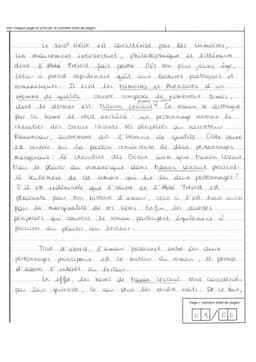 Le XVIIIe siècle est caractérisé par les Lumières,
un mouvement intellectuel, philosophique et littéraire
dont l'Abbé Prévost fait partie. Dès son plus jeune âge,
celui-ci prend rapidement goût aux lectures poétiques et
romanesques. Il écrit les Mémoires et Aventures d'un
Homme de qualité, œuvre composée de nombreux tomes,
dont le dernier est Manon Lescaut. Ce roman se distingue
par sa forme de récit enchâssé : un personnage nommé le
chevalier des Grieux raconte ses péripéties au narrateur
Renoncour, autrement dit l'homme de qualité. Cette œuvre
est centrée sur la passion amoureuse de deux personnages
marginaux : le chevalier des Grieux ainsi que Manon Lescaut.
Mais le plaisir du romanesque dans Manon Lescaut provient
il seulement de cet amour qui lie ces deux personnages ?
S'il est indéniable que l'œuvre de l'Abbé Prévost est
plaisante pour son histoire d'amour, celle-ci l'est tout aussi
par la marginalité de ses héros. Enfin, les diverses
péripéties que couvre le roman participent également à
procurer du plaisir au lecteur.
Tout d'abord, l'amour passionnel entre les deux
personnages principaux est le moteur du roman, et permet
d'attirer l'intérêt du lecteur.
En effet, les héros de Manon Lescaut sont caractérisés
par leur jeunesse, ce qui peut les rendre naïfs. De ce fait,
Page / nombre total de pages
01 / 06